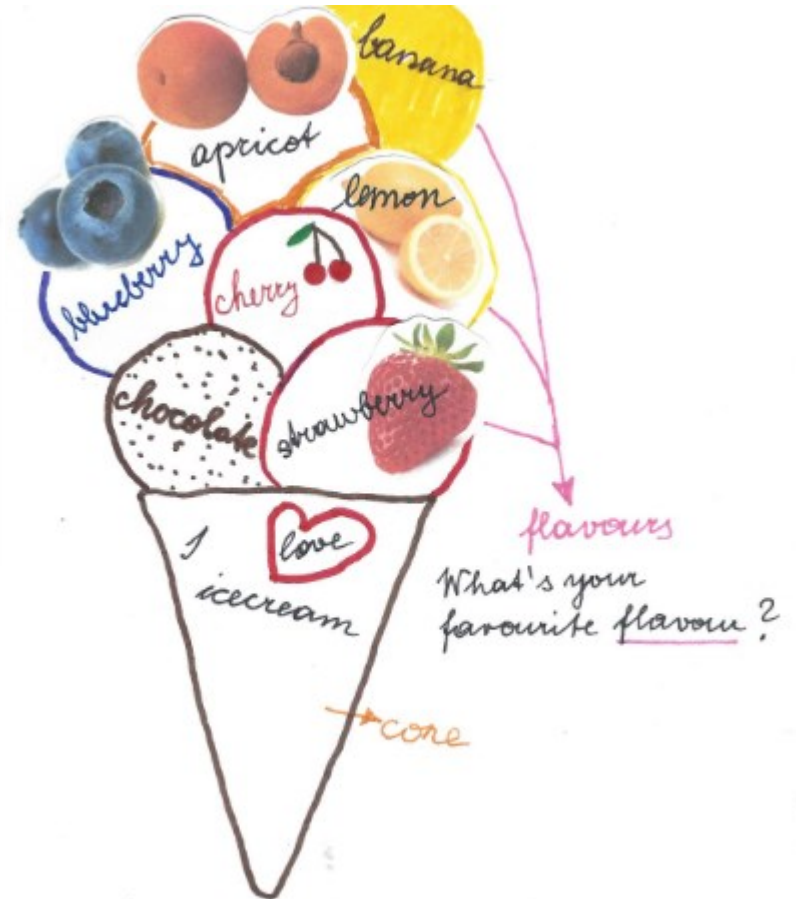 banana
apricot
lemon
blueberry
cherry
chocolate
strawberry
I love
icecream
flavours
What's your
favourite flavour ?
cone